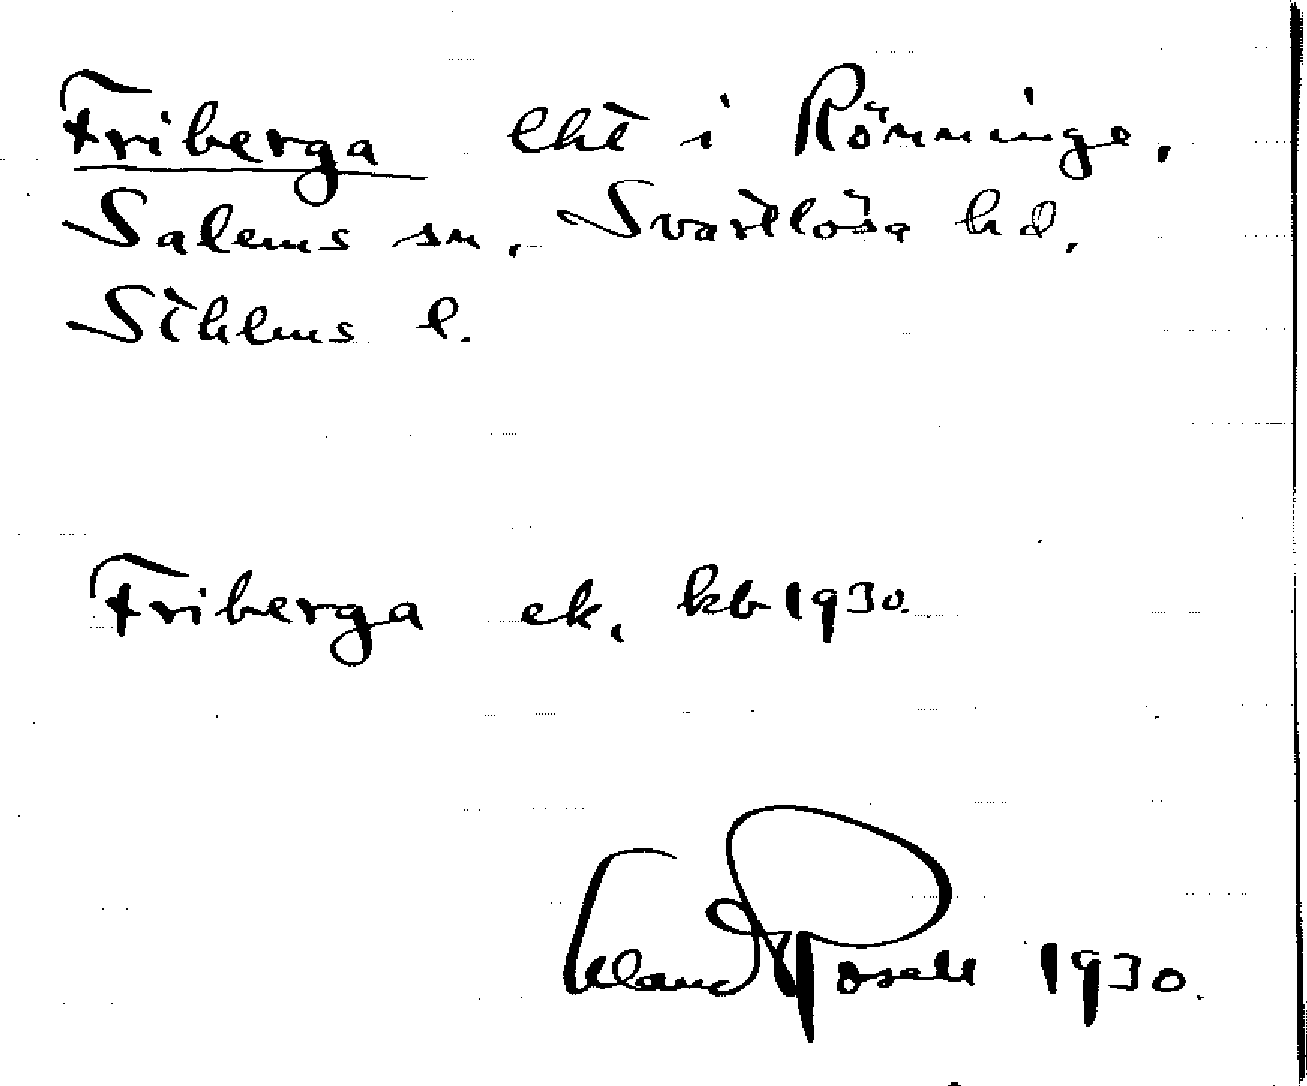 Friberga lht i Rönninge,
Salems sn, Svartlösa hd,
Sthlms l.
Friberga ek, kb 1930.
Erland Rosell 1930.